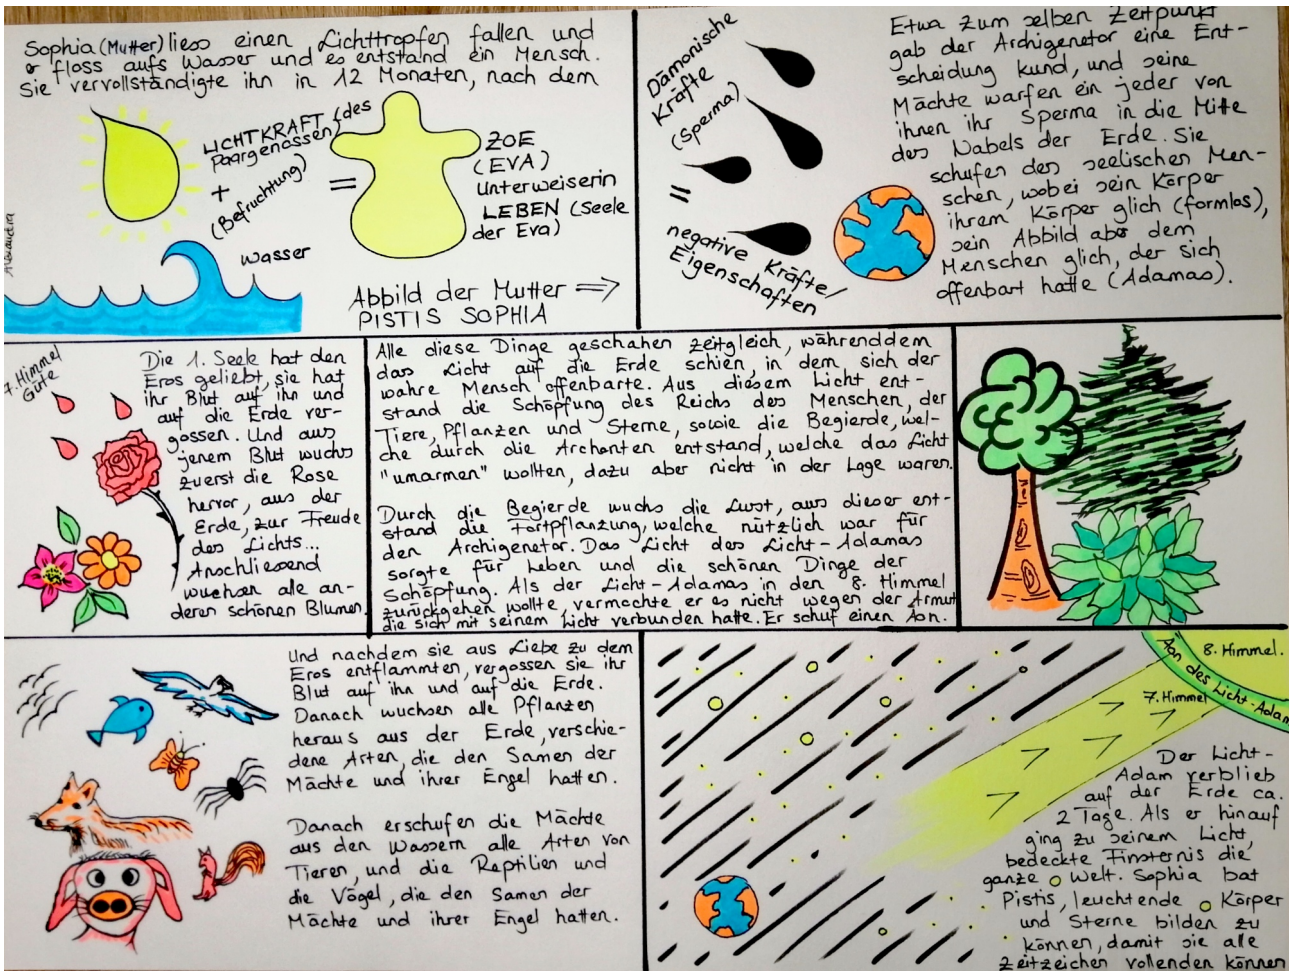 Sophia (Mutter) liess einen Lichttropfen fallen und
er floss aufs Wasser und es entstand ein Mensch.
Sie vervollständigte ihn in 12 Monaten, nach dem
LICHTKRAFT (des
Paargenossen)
+
(Befruchtung)
=
ZOE
(EVA)
Unterweiserin
LEBEN (Seele
der Eva)
Wasser
Abbild der Mutter =>
PISTIS SOPHIA
Dämonische
Kräfte
(Sperma)
=
negative Kräfte/
Eigenschaften
Etwa zum selben Zeitpunkt
gab der Archigenetor eine Ent-
scheidung kund, und seine
Mächte warfen ein jeder von
ihnen ihr Sperma in die Mitte
des Nabels der Erde. Sie
schufen den seelischen Men-
schen, wobei sein Körper
ihrem Körper glich (formlos),
sein Abbild aber dem
Menschen glich, der sich
offenbart hatte (Adamas).
7. Himmel
Güte
Die 1. Seele hat den
Eros geliebt, sie hat
ihr Blut auf ihn und
auf die Erde ver-
gossen. Und aus
jenem Blut wuchs
zuerst die Rose
hervor, aus der
Erde, zur Freude
des Lichts...
Anschliessend
wuchsen alle an-
deren schönen Blumen.
Alle diese Dinge geschahen zeitgleich, währenddem
das Licht auf die Erde schien, in dem sich der
wahre Mensch offenbarte. Aus diesem Licht ent-
stand die Schöpfung des Reichs des Menschen, der
Tiere, Pflanzen und Sterne, sowie die Begierde, wel-
che durch die Archonten entstand, welche das Licht
"umarmen" wollten, dazu aber nicht in der Lage waren.
Durch die Begierde wuchs die Lust, aus dieser ent-
stand die Fortpflanzung, welche nützlich war für
den Archigenetor. Das Licht des Licht-Adamas
sorgte für Leben und die schönen Dinge der
Schöpfung. Als der Licht-Adamas in den 8. Himmel
zurückgehen wollte, vermochte er es nicht wegen der Armut
die sich mit seinem Licht verbunden hatte. Er schuf einen Äon.
Und nachdem sie aus Liebe zu dem
Eros entflammten, vergossen sie ihr
Blut auf ihn und auf die Erde.
Danach wuchsen alle Pflanzen
heraus aus der Erde, verschie-
dene Arten, die den Samen der
Mächte und ihrer Engel hatten.
Danach erschufen die Mächte
aus den Wassern alle Arten von
Tieren, und die Reptilien und
die Vögel, die den Samen der
Mächte und ihrer Engel hatten.
8. Himmel.
Äon des Licht-Adam
7. Himmel
Der Licht-
Adam verblieb
auf der Erde ca.
2 Tage. Als er hinauf
ging zu seinem Licht,
bedeckte Finsternis die
ganze Welt. Sophia bat
Pistis, leuchtende Körper
und Sterne bilden zu
können, damit sie alle
Zeitzeichen vollenden können